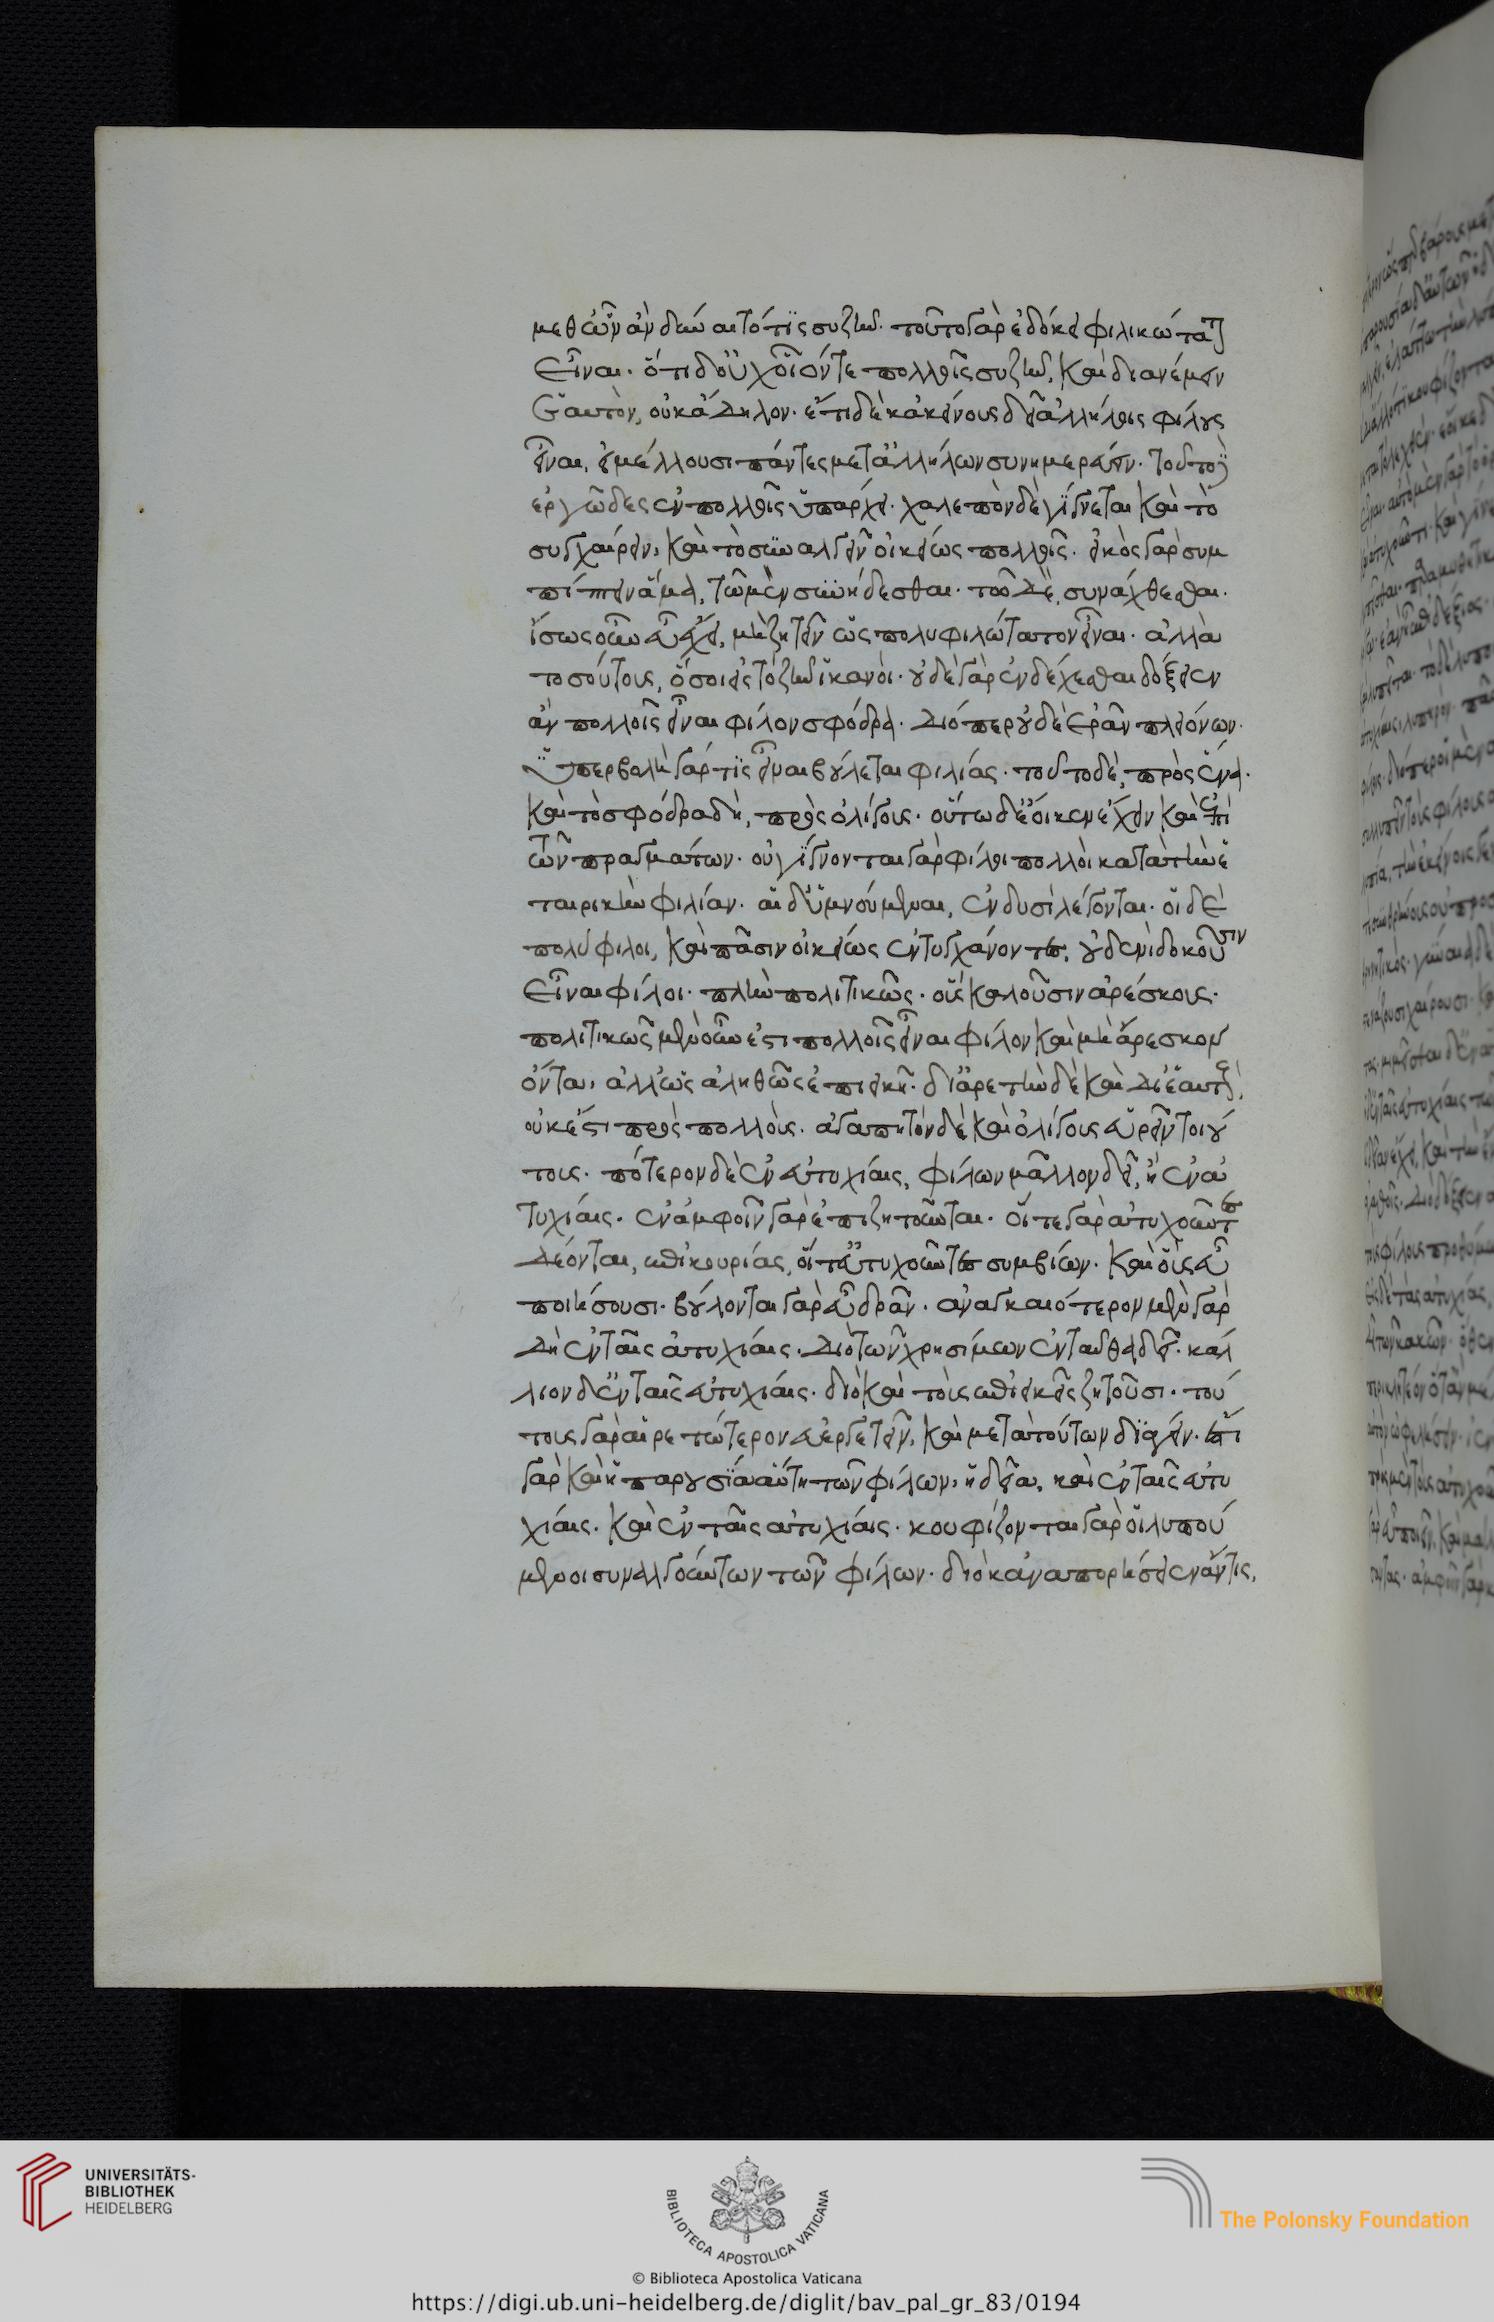 μεθ' ὧν ἂν δύναιτό τις συζῆν· τοῦτο γὰρ ἐδόκει φιλικώτατον
εἶναι· ὅτι δ' οὐχ οἷόν τε πολλοῖς συζῆν, καὶ διανέμειν
ἑαυτὸν, οὐκ ἄδηλον· ἔτι δὲ κἀκείνους δεῖ ἀλλήλοις φίλους
εἶναι, εἰ μέλλουσι πάντες μετ' ἀλλήλων συνημερεύειν· τοῦτο δ'
ἐργῶδες ἐν πολλοῖς ὑπάρχει· χαλεπὸν δὲ γίγνεται καὶ τὸ
συγχαίρειν, καὶ τὸ συναλγεῖν οἰκείως πολλοῖς· εἰκὸς γὰρ συμ
πίπτειν ἅμα, τῶ μὲν συνήδεσθαι· τοῦ δὲ, συνάχθεσθαι·
ἴσως οὖν εὖ ἔχει, μὴ ζητεῖν ὡς πολυφιλώτατον εἶναι· ἀλλὰ
τοσούτους, ὅσοι εἰς τὸ ζῆν ἱκανοί· οὐδὲ γὰρ ἐνδέχεσθαι δόξειεν
ἂν πολλοῖς εἶναι φίλον σφόδρα· διόπερ οὐδὲ ἐρᾶν πλειόνων·
ὑπερβολὴ γάρ τις εἶναι βούλεται φιλίας· τοῦτο δὲ, πρὸς ἕνα·
καὶ τὸ σφόδρα δὴ, πρὸς ὀλίγους· οὕτω δ' ἔοικεν ἔχειν καὶ ἐπὶ
τῶν πραγμάτων· οὐ γίγνονται γὰρ φίλοι πολλοὶ κατὰ τὴν ἑ
ταιρικὴν φιλίαν· αἱ δ' ὑμνούμεναι, ἐν δυσὶ λέγονται· οἱ δὲ
πολύφιλοι, καὶ πᾶσιν οἰκείως ἐντυγχάνοντες, οὐδενὶ δοκοῦσιν
εἶναι φίλοι· πλὴν πολιτικῶς· οὓς καλοῦσιν ἀρέσκους·
πολιτικῶς μὲν οὖν ἔστι πολλοῖς εἶναι φίλον καὶ μὴ ἄρεσκον
ὄντα, ἀλλ' ὡς ἀληθῶς ἐπιεικῆ· δι' ἀρετὴν δὲ καὶ δι' ἑαυτοὺς,
οὐκ ἔστι πρὸς πολλούς· ἀγαπητὸν δὲ καὶ ὀλίγους εὑρεῖν τοιού
τους· πότερον δὲ ἐν εὐτυχίαις, φίλων μᾶλλον δεῖ, ἢ ἐν ἀ
τυχίαις· ἐν ἀμφοῖν γὰρ ἐπιζητοῦνται· οἵ τε γὰρ ἀτυχοῦντες
δέονται, ἐπικουρίας, οἵ τ' εὐτυχοῦντες συμβίων· καὶ οὓς εὖ
ποιήσουσι· βούλονται γὰρ εὖ δρᾶν· ἀναγκαιότερον μὲν γὰρ
δὴ ἐν ταῖς ἀτυχίαις· διὸ τῶν χρησίμων ἐνταῦθα δεῖ· κάλ
λιον δ' ἐν ταῖς εὐτυχίαις· διὸ καὶ τοὺς ἐπιεικεῖς ζητοῦσι· τού
τους γὰρ αἱρετώτερον εὐεργετεῖν, καὶ μετὰ τούτων διάγειν· ἔστι
γὰρ καὶ ἡ παρουσία αὐτὴ τῶν φίλων, ἡδεῖα, καὶ ἐν ταῖς εὐτυ
χίαις· καὶ ἐν ταῖς ἀτυχίαις· κουφίζονται γὰρ οἱ λυπού
μενοι συναλγούντων τῶν φίλων· διὸ κἂν ἀπορήσειεν ἄν τις,
UNIVERSITÄTS-
BIBLIOTHEK
HEIDELBERG
BIBLIOTECA APOSTOLICA VATICANA
The Polonsky Foundation
© Biblioteca Apostolica Vaticana
https://digi.ub.uni-heidelberg.de/diglit/bav_pal_gr_83/0194